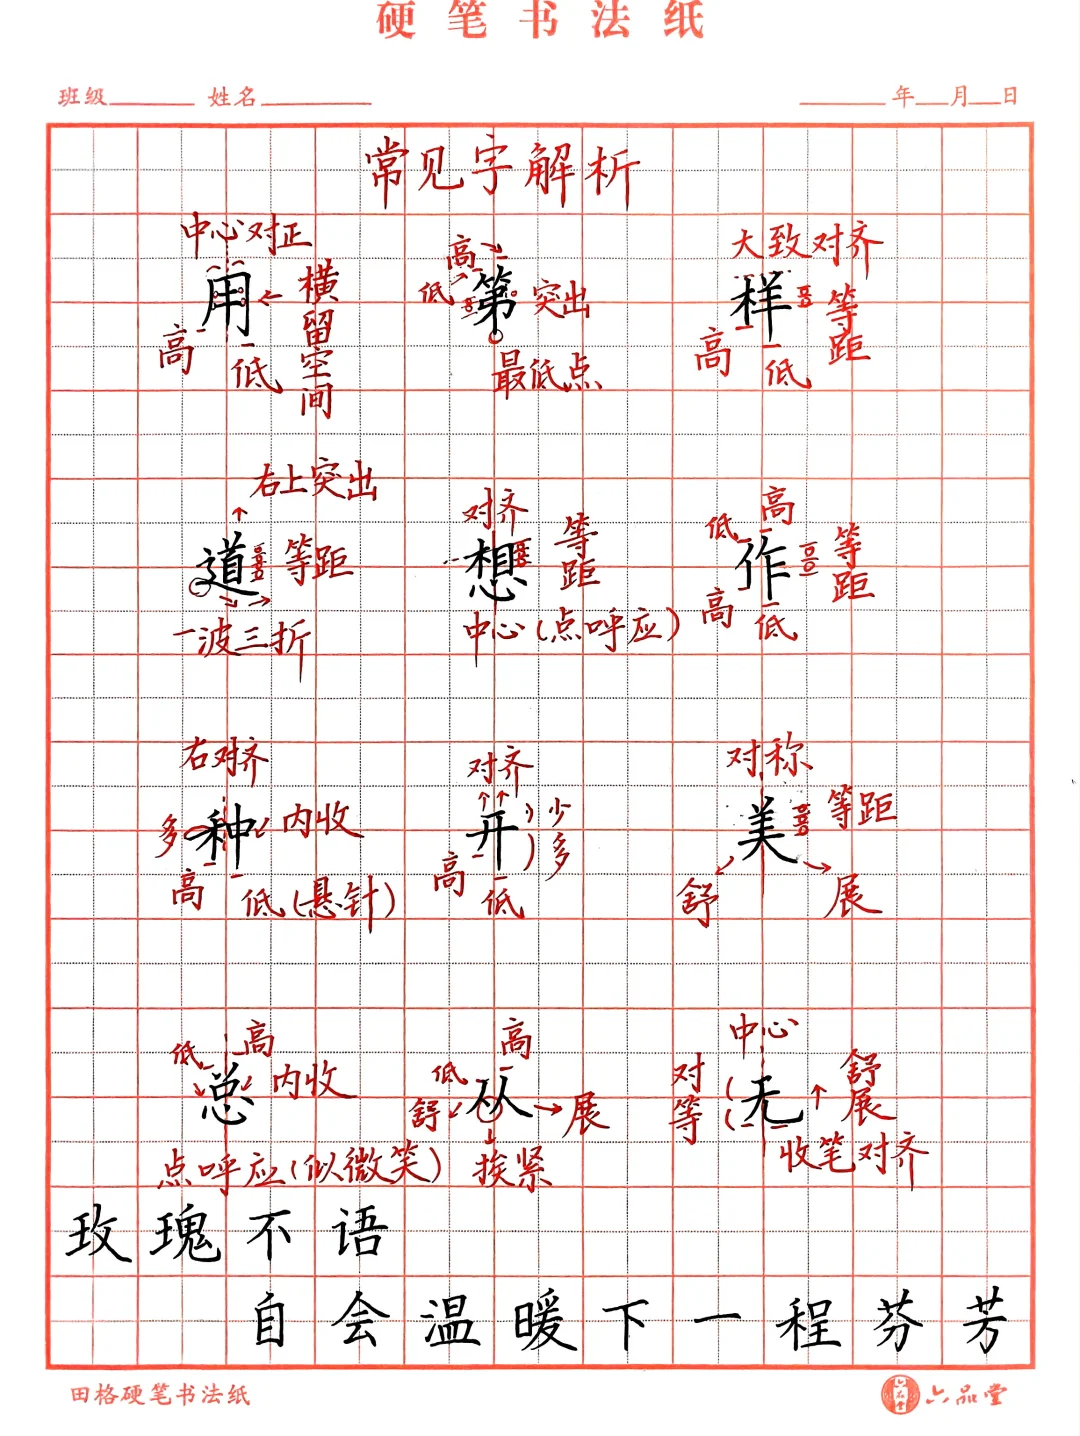 硬笔书法纸
班级 姓名 年 月 日
常见字解析
中心对正
用
横留空间
高
低
高
低
第
突出
最低点
大致对齐
样
等距
高
低
右上突出
道
等距
一波三折
对齐
想
等距
中心(点呼应)
低
高
作
等距
高
低
右对齐
多
种
内收
高
低(悬针)
对齐
开
少
多
高
低
对称
美
等距
舒
展
低
高
总
内收
点呼应(似微笑)
高
低
从
舒
展
挨紧
中心
对等
无
舒展
收笔对齐
玫瑰不语
自会温暖下一程芬芳
田格硬笔书法纸
六品堂
六品堂